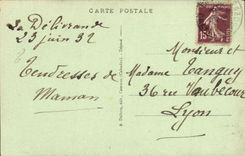 CARTE POSTALE
La Délivrande
23 juin 32
Tendresses de
Maman
Monsieur et
Madame Tanguy
36 rue Vaubecour
Lyon
15